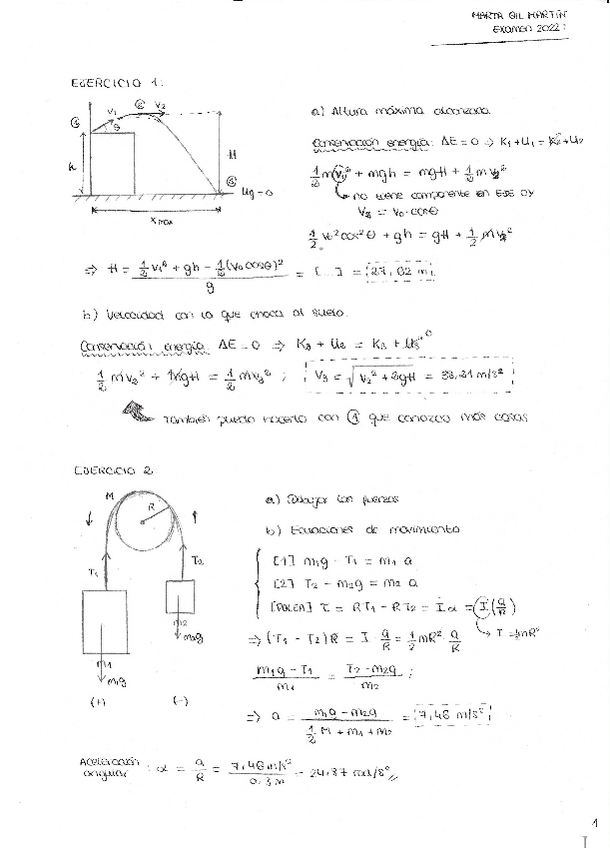 MARTA GIL MARTÍN
EXAMEN 2022:
EJERCICIO 1:
a) Altura máxima alcanzada
Conservación energía: ΔE = 0 ⇒ K1 + U1 = K2 + U2
1/2 m v1² + mgh = mgH + 1/2 m v2²
no tiene componente en EJE OY
V2 = V0 · cosθ
1/2 v0² cos²θ + gh = gH + 1/2 m v2²
⇒ H = (1/2 v1² + gh - 1/2 (v0 cosθ)²) / g = [...] = 27,62 m
① ② ③ v1 v2 θ h H Ug = 0
xmax
b) Velocidad con la que choca al suelo.
Conservación energía: ΔE = 0 ⇒ K2 + U2 = K3 + U3 0
1/2 m v2² + mgH = 1/2 m v3² ; V3 = √(v2² + 2gH) = 38,21 m/s²
También puedo hacerlo con ① que conozco más cosas
EJERCICIO 2
a) Dibujar las fuerzas
b) Ecuaciones de movimiento
[1] m1g - T1 = m1 a
[2] T2 - m2g = m2 a
[POLEA] τ = RT1 - RT2 = I α = I (a/R)
⇒ (T1 - T2) R = I · a/R = 1/2 mR² · a/R
I = 1/2 mR²
(m1g - T1) / m1 = (T2 - m2g) / m2 ;
⇒ a = (m1g - m2g) / (1/2 M + m1 + m2) = 7,46 m/s²
M R T1 T2
m1 m2
m1g m2g
(+) (-)
Aceleración angular : α = a/R = 7,46 m/s² / 0,3 m = 24,87 rad/s²
1